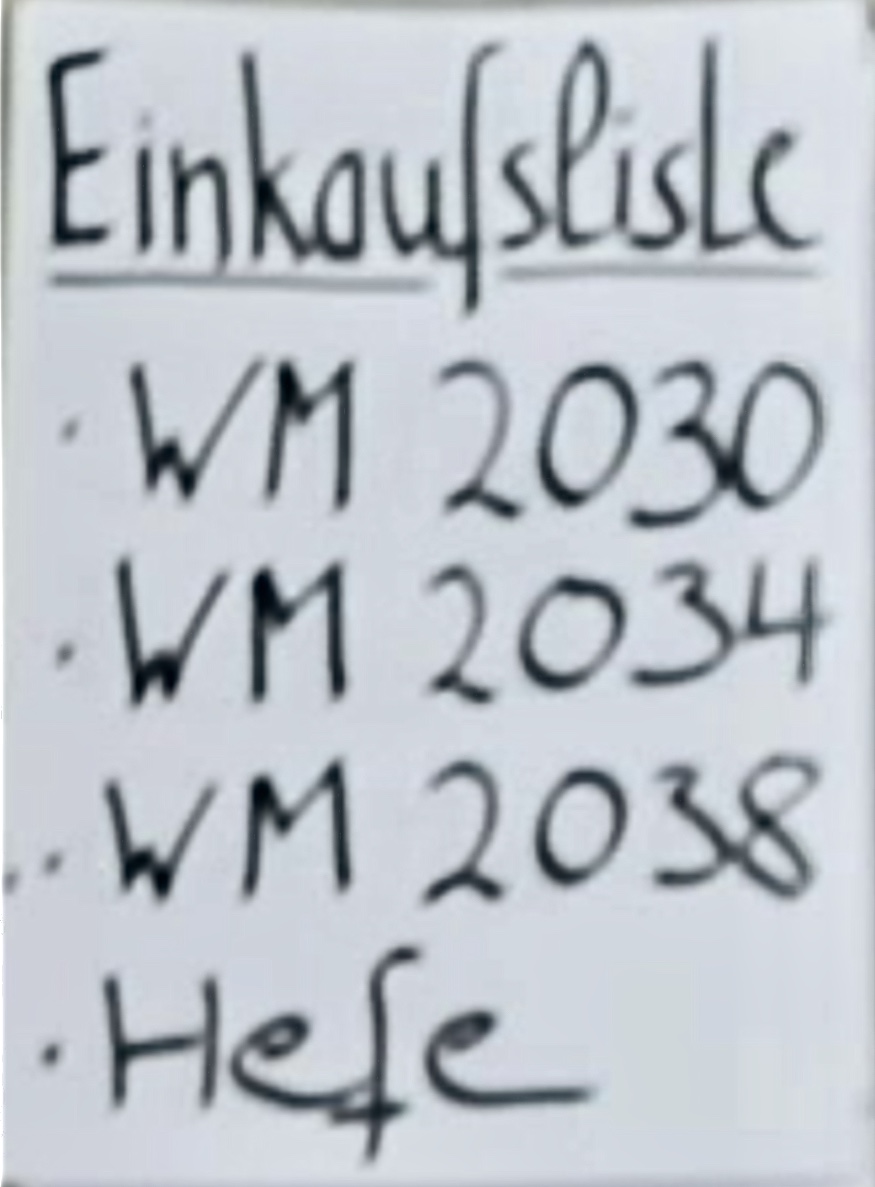 Einkaufsliste
· WM 2030
· WM 2034
· WM 2038
· Hefe